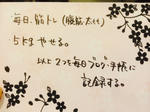 毎日、筋トレ(腹筋、太もも)
5kgやせる。
以上2つを毎日ブログ・手帳に
記録する。